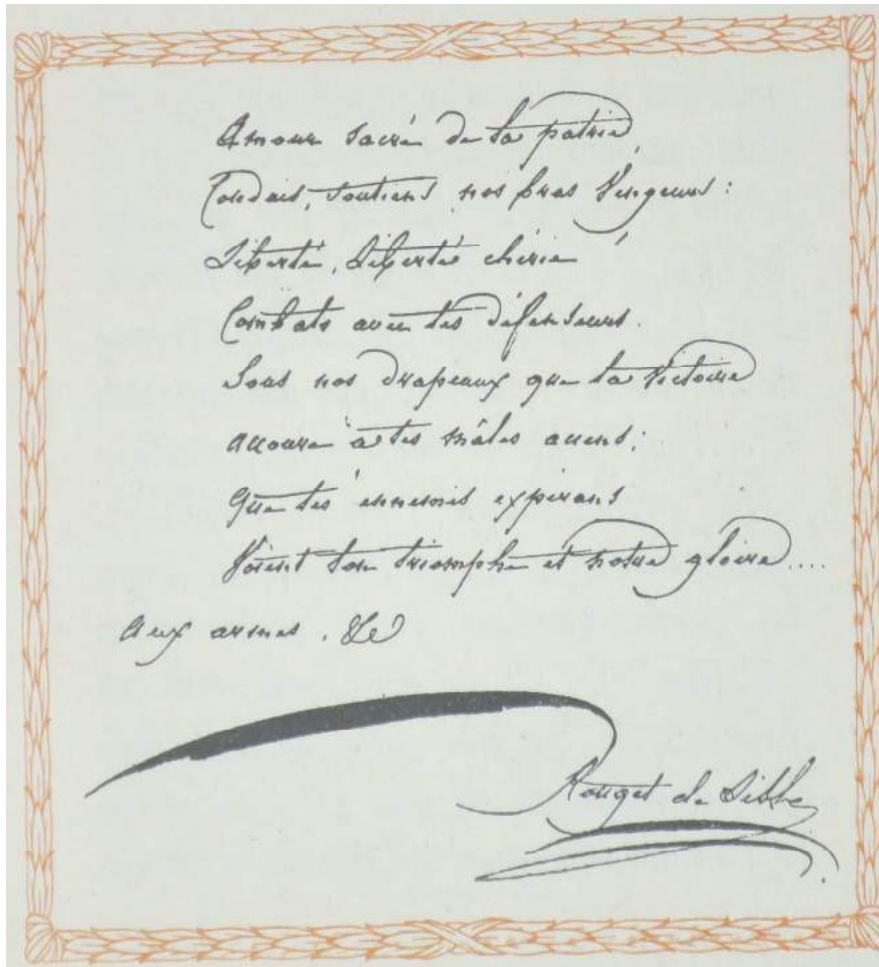 Amour sacré de la patrie,
Conduis, soutiens nos bras Vengeurs :
Liberté, Liberté chérie !
Combats avec tes défenseurs.
Sous nos drapeaux que la Victoire
accoure à tes mâles accens ;
Que tes ennemis expirans
Voient ton triomphe et notre gloire....
Aux armes . &c
Rouget de Lisle